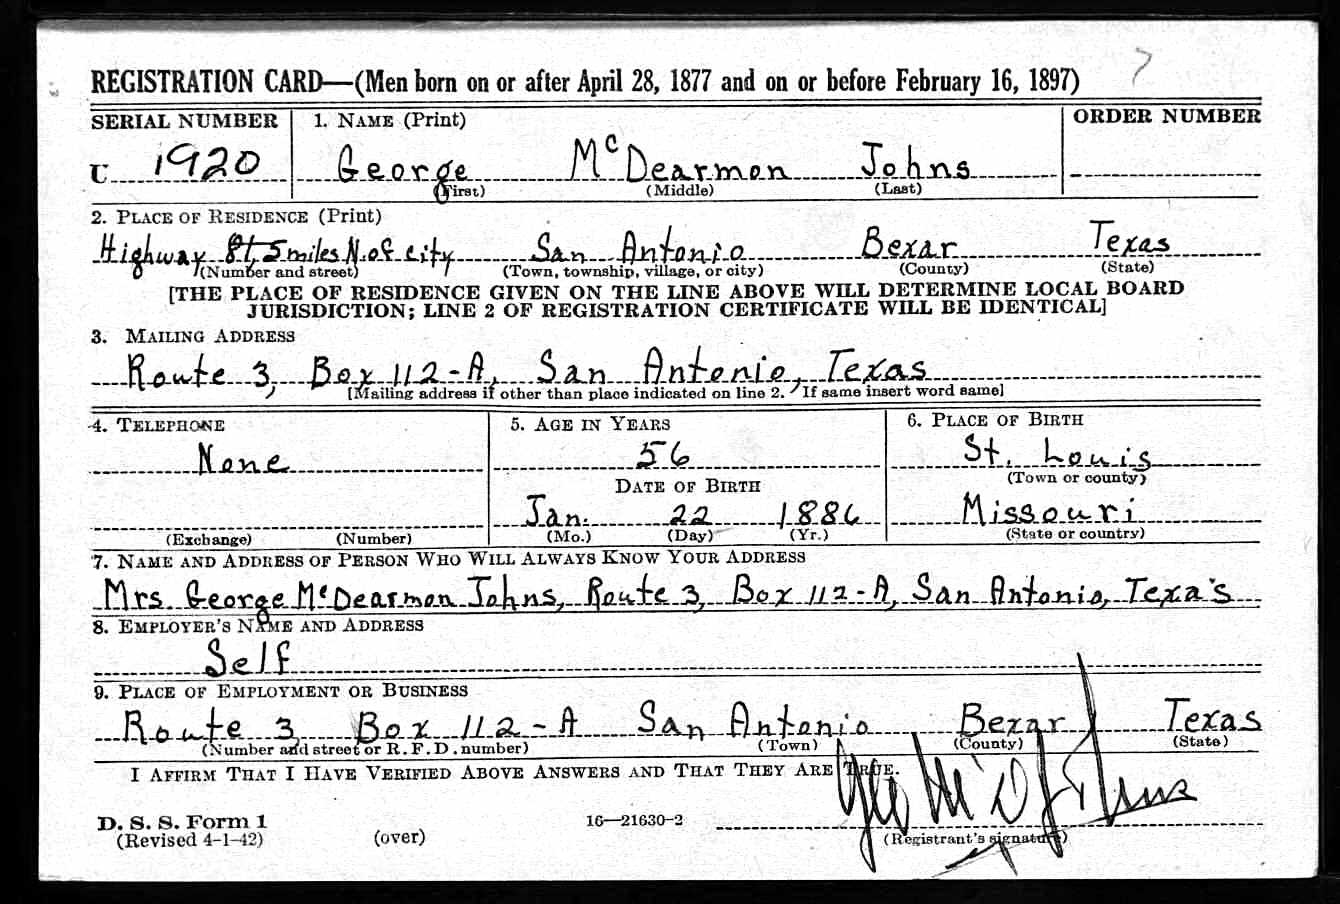 7
REGISTRATION CARD—(Men born on or after April 28, 1877 and on or before February 16, 1897)
SERIAL NUMBER 1. NAME (Print) ORDER NUMBER
U 1920 George McDearmon Johns
(First) (Middle) (Last)
2. PLACE OF RESIDENCE (Print)
Highway 81, 5 miles N. of city San Antonio Bexar Texas
(Number and street) (Town, township, village, or city) (County) (State)
[THE PLACE OF RESIDENCE GIVEN ON THE LINE ABOVE WILL DETERMINE LOCAL BOARD
JURISDICTION; LINE 2 OF REGISTRATION CERTIFICATE WILL BE IDENTICAL]
3. MAILING ADDRESS
Route 3, Box 112-A, San Antonio, Texas
[Mailing address if other than place indicated on line 2. If same insert word same]
4. TELEPHONE 5. AGE IN YEARS 6. PLACE OF BIRTH
None 56 St. Louis
DATE OF BIRTH (Town or county)
Jan. 22 1886 Missouri
(Exchange) (Number) (Mo.) (Day) (Yr.) (State or country)
7. NAME AND ADDRESS OF PERSON WHO WILL ALWAYS KNOW YOUR ADDRESS
Mrs. George McDearmon Johns, Route 3, Box 112-A, San Antonio, Texas
8. EMPLOYER'S NAME AND ADDRESS
Self
9. PLACE OF EMPLOYMENT OR BUSINESS
Route 3 Box 112-A San Antonio Bexar Texas
(Number and street or R. F. D. number) (Town) (County) (State)
I AFFIRM THAT I HAVE VERIFIED ABOVE ANSWERS AND THAT THEY ARE TRUE.
Geo McD Johns
D. S. S. Form 1 16—21630-2
(Revised 4-1-42) (over) (Registrant's signature)